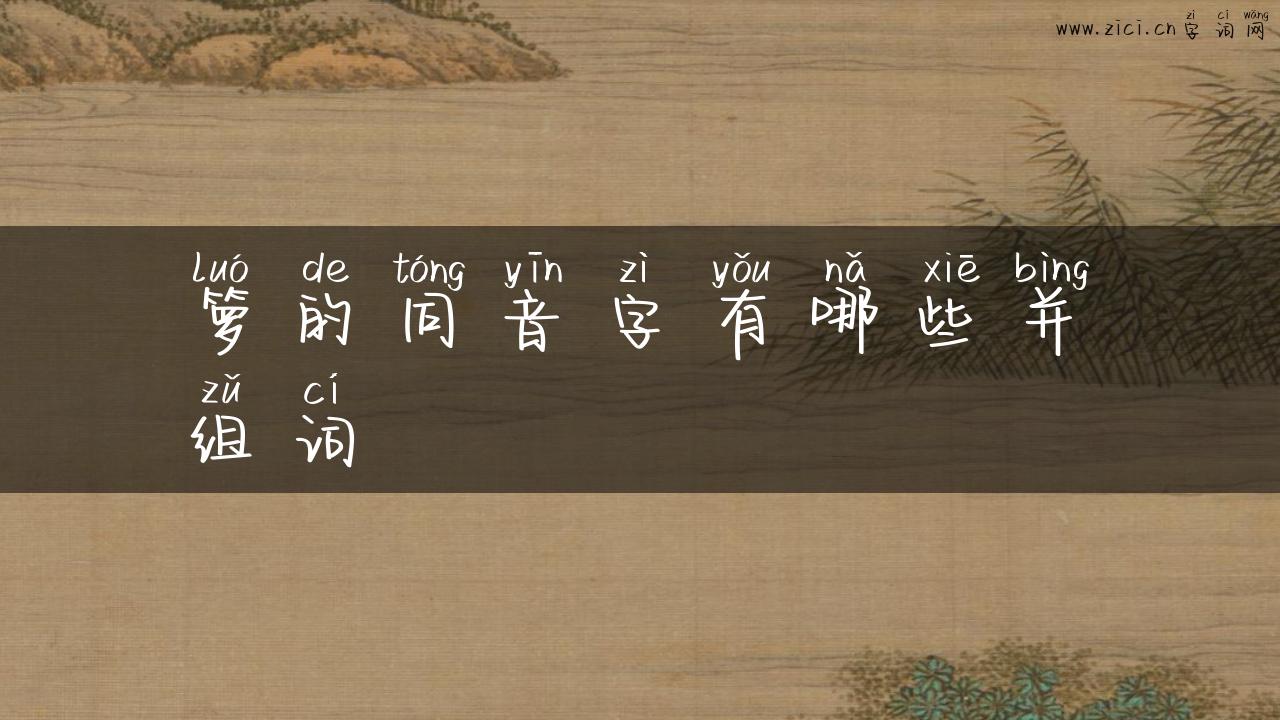 zì cí wǎng
www.zici.cn字词网
luó de tóng yīn zì yǒu nǎ xiē bìng
箩的同音字有哪些并
zǔ cí
组词